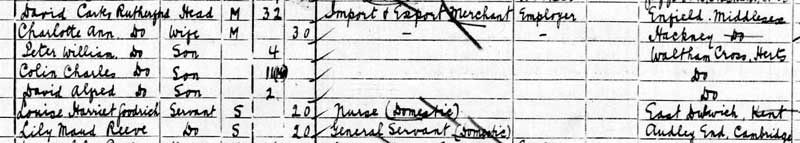 David Carks Rutherford Head M 32 Import & Export Merchant Employer Enfield. Middlesex
Charlotte Ann Do Wife M 30 — — Hackney Do
Peter William. Do Son 4 Waltham Cross. Herts
Colin Charles Do Son Do
David Alfred Do Son 2 Do
Louise Harriet Goodrich Servant S 20 Nurse (Domestic) East Dulwich, Kent
Lily Maud Reeve Do S 20 General Servant (Domestic) Audley End, Cambridge